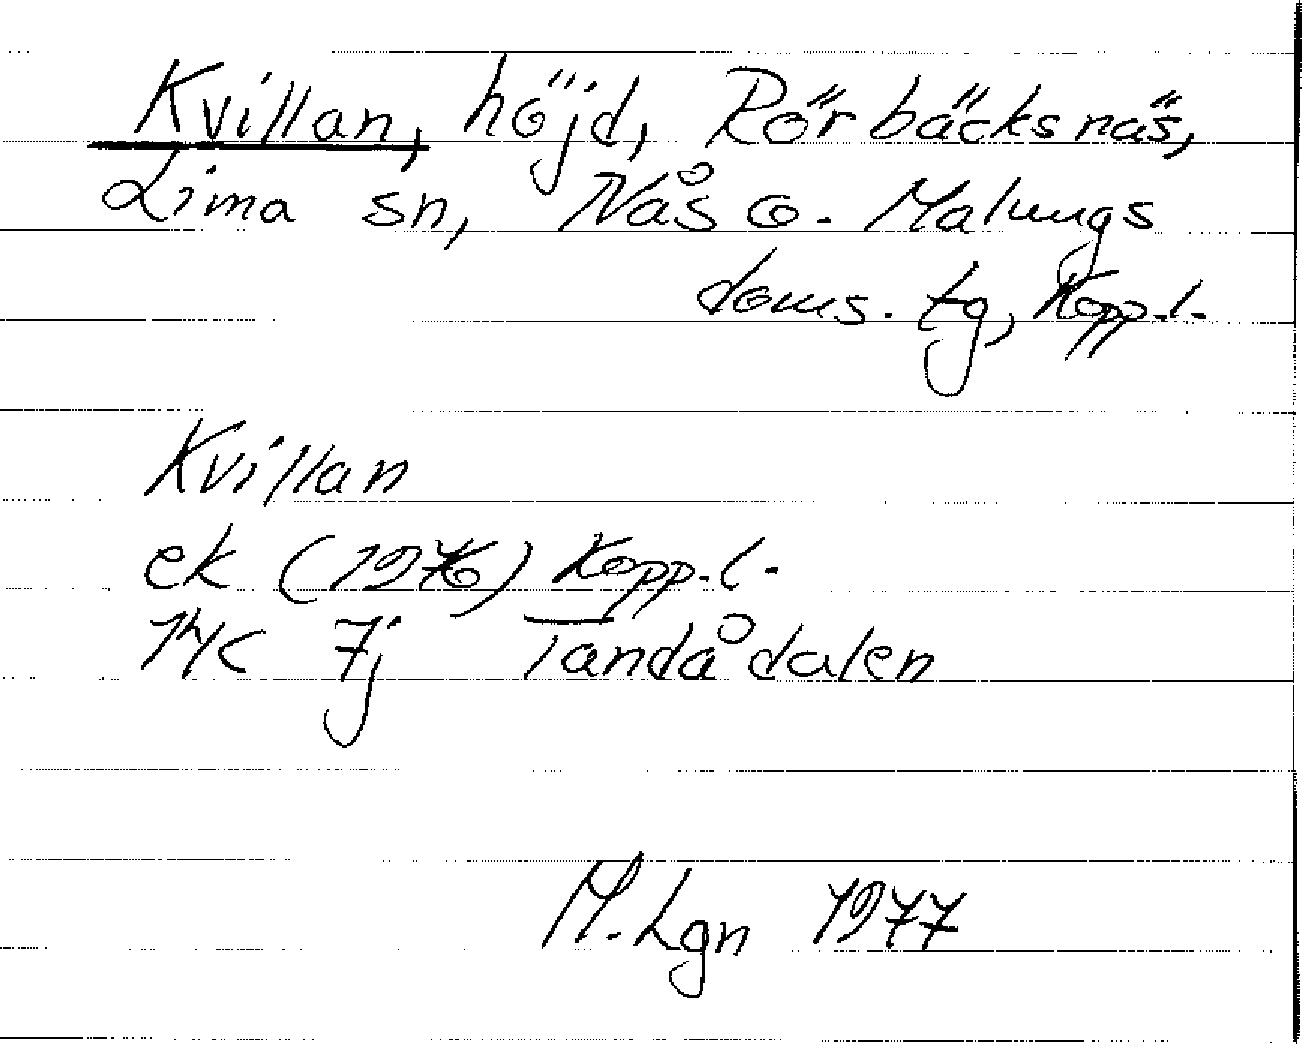 Kvillan, höjd, Rörbäcksnäs,
Lima sn, Nås o. Malungs
doms. tg, Kopp.l.
Kvillan
ek (1976) Kopp.l.
14C 7j Tandådalen
M. Lgn 1977